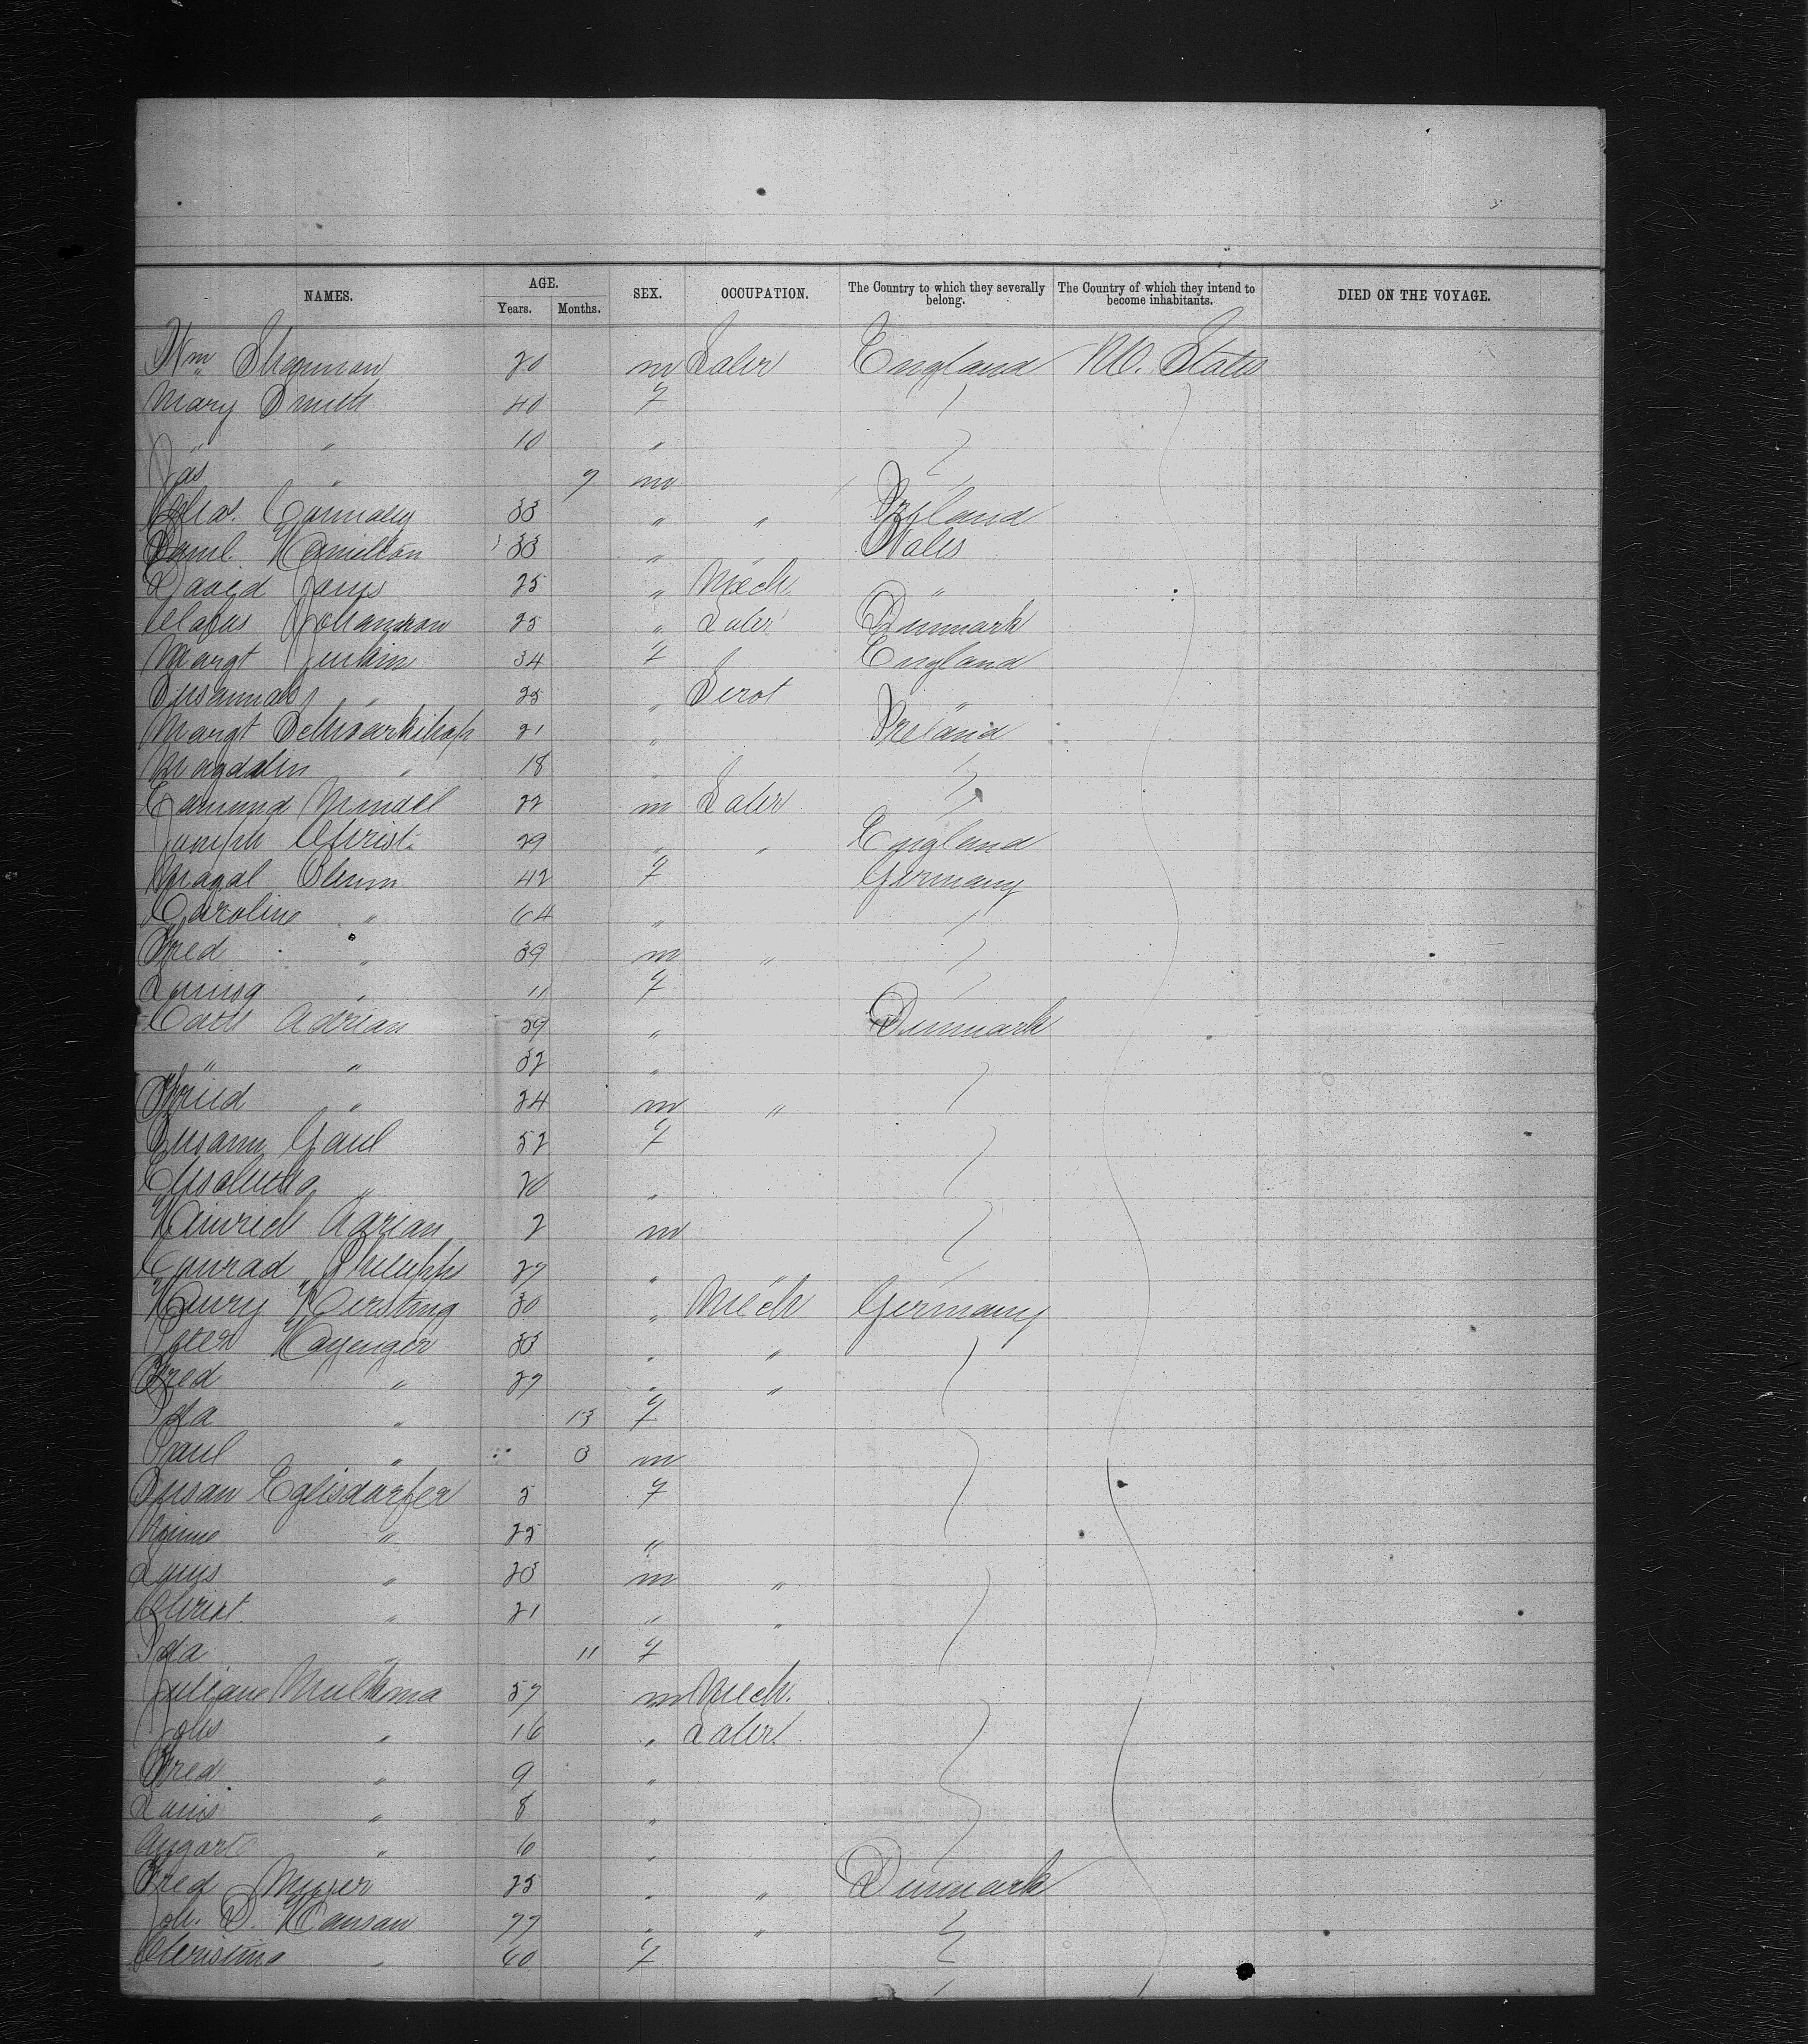 NAMES. AGE. Years. Months. SEX. OCCUPATION. The Country to which they severally belong. The Country of which they intend to become inhabitants. DIED ON THE VOYAGE.
Wm Shapman 20 m Labr England U. States
Mary Smith 40 f
" " 10 "
Jas " 9 m
Chas. Connolly 33 " " Ireland
Saml. Hamilton 33 " Wales
David Janys 25 " Mech. "
Clapus Johannson 25 " Labr Denmark
Margt Jenkin 34 f England
Susannah " 25 " Servt "
Margt Schwarkihop 21 " Ireland
Magdalen " 18 "
Edmund Mindel 22 m Labr
Joseph Christ. 29 " " England
Magdl Blum 42 f Germany
Caroline " 64 "
Fred " 39 m "
Louisa " 11 f
Cath Adrian 59 " Denmark
" " 32 "
Fried " 24 m "
Susann Gaul 52 f
Elisabetha " 20 "
Heinrich Adrian 2 m
Conrad Philipps 27 " "
Henry Kersting 30 " Mech Germany
Peter Hayenger 33 " "
Fred " 27 " "
Ida " 13 f
Paul " 3 m
Susan Eglisdorfer 5 f
Minne " 25 "
Louis " 23 m "
Christ. " 21 " "
Ida " 11 f
Juliane Mulhma 57 m Mech.
Johs " 16 " Labr.
Fred " 9 "
Louis " 8 "
August " 6 "
Fred Meyer 25 " " Denmark
Joh. D. Hansan 77 " "
Christina " 60 f